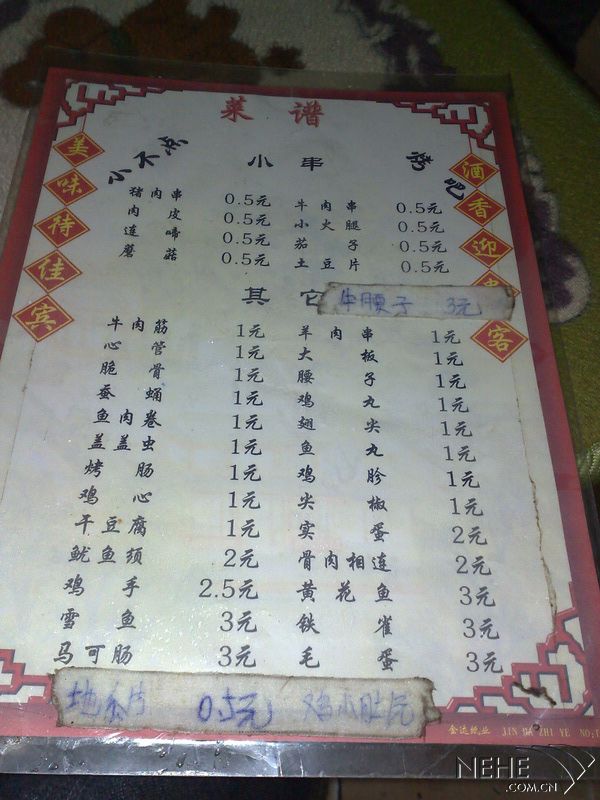 菜谱
小不点 小串 烤吧
美味待佳宾
酒香迎 客
猪肉串 0.5元 牛肉串 0.5元
肉皮 0.5元 小火腿 0.5元
连啼 0.5元 茄子 0.5元
蘑菇 0.5元 土豆片 0.5元
其它 牛腰子 3元
牛肉筋 1元 羊肉串 1元
心管 1元 大板 1元
脆骨 1元 腰子 1元
蚕蛹 1元 鸡丸 1元
鱼肉卷 1元 翅尖 1元
盖盖虫 1元 鱼丸 1元
烤肠 1元 鸡胗 1元
鸡心 1元 尖椒 1元
干豆腐 1元 实蛋 2元
鱿鱼须 2元 骨肉相连 2元
鸡手 2.5元 黄花鱼 3元
雪鱼 3元 铁雀 3元
马可肠 3元 毛蛋 3元
地瓜片 0.5元 鸡小肚 元
金达纸业 JIN DA ZHI YE
NEHE
.COM.CN